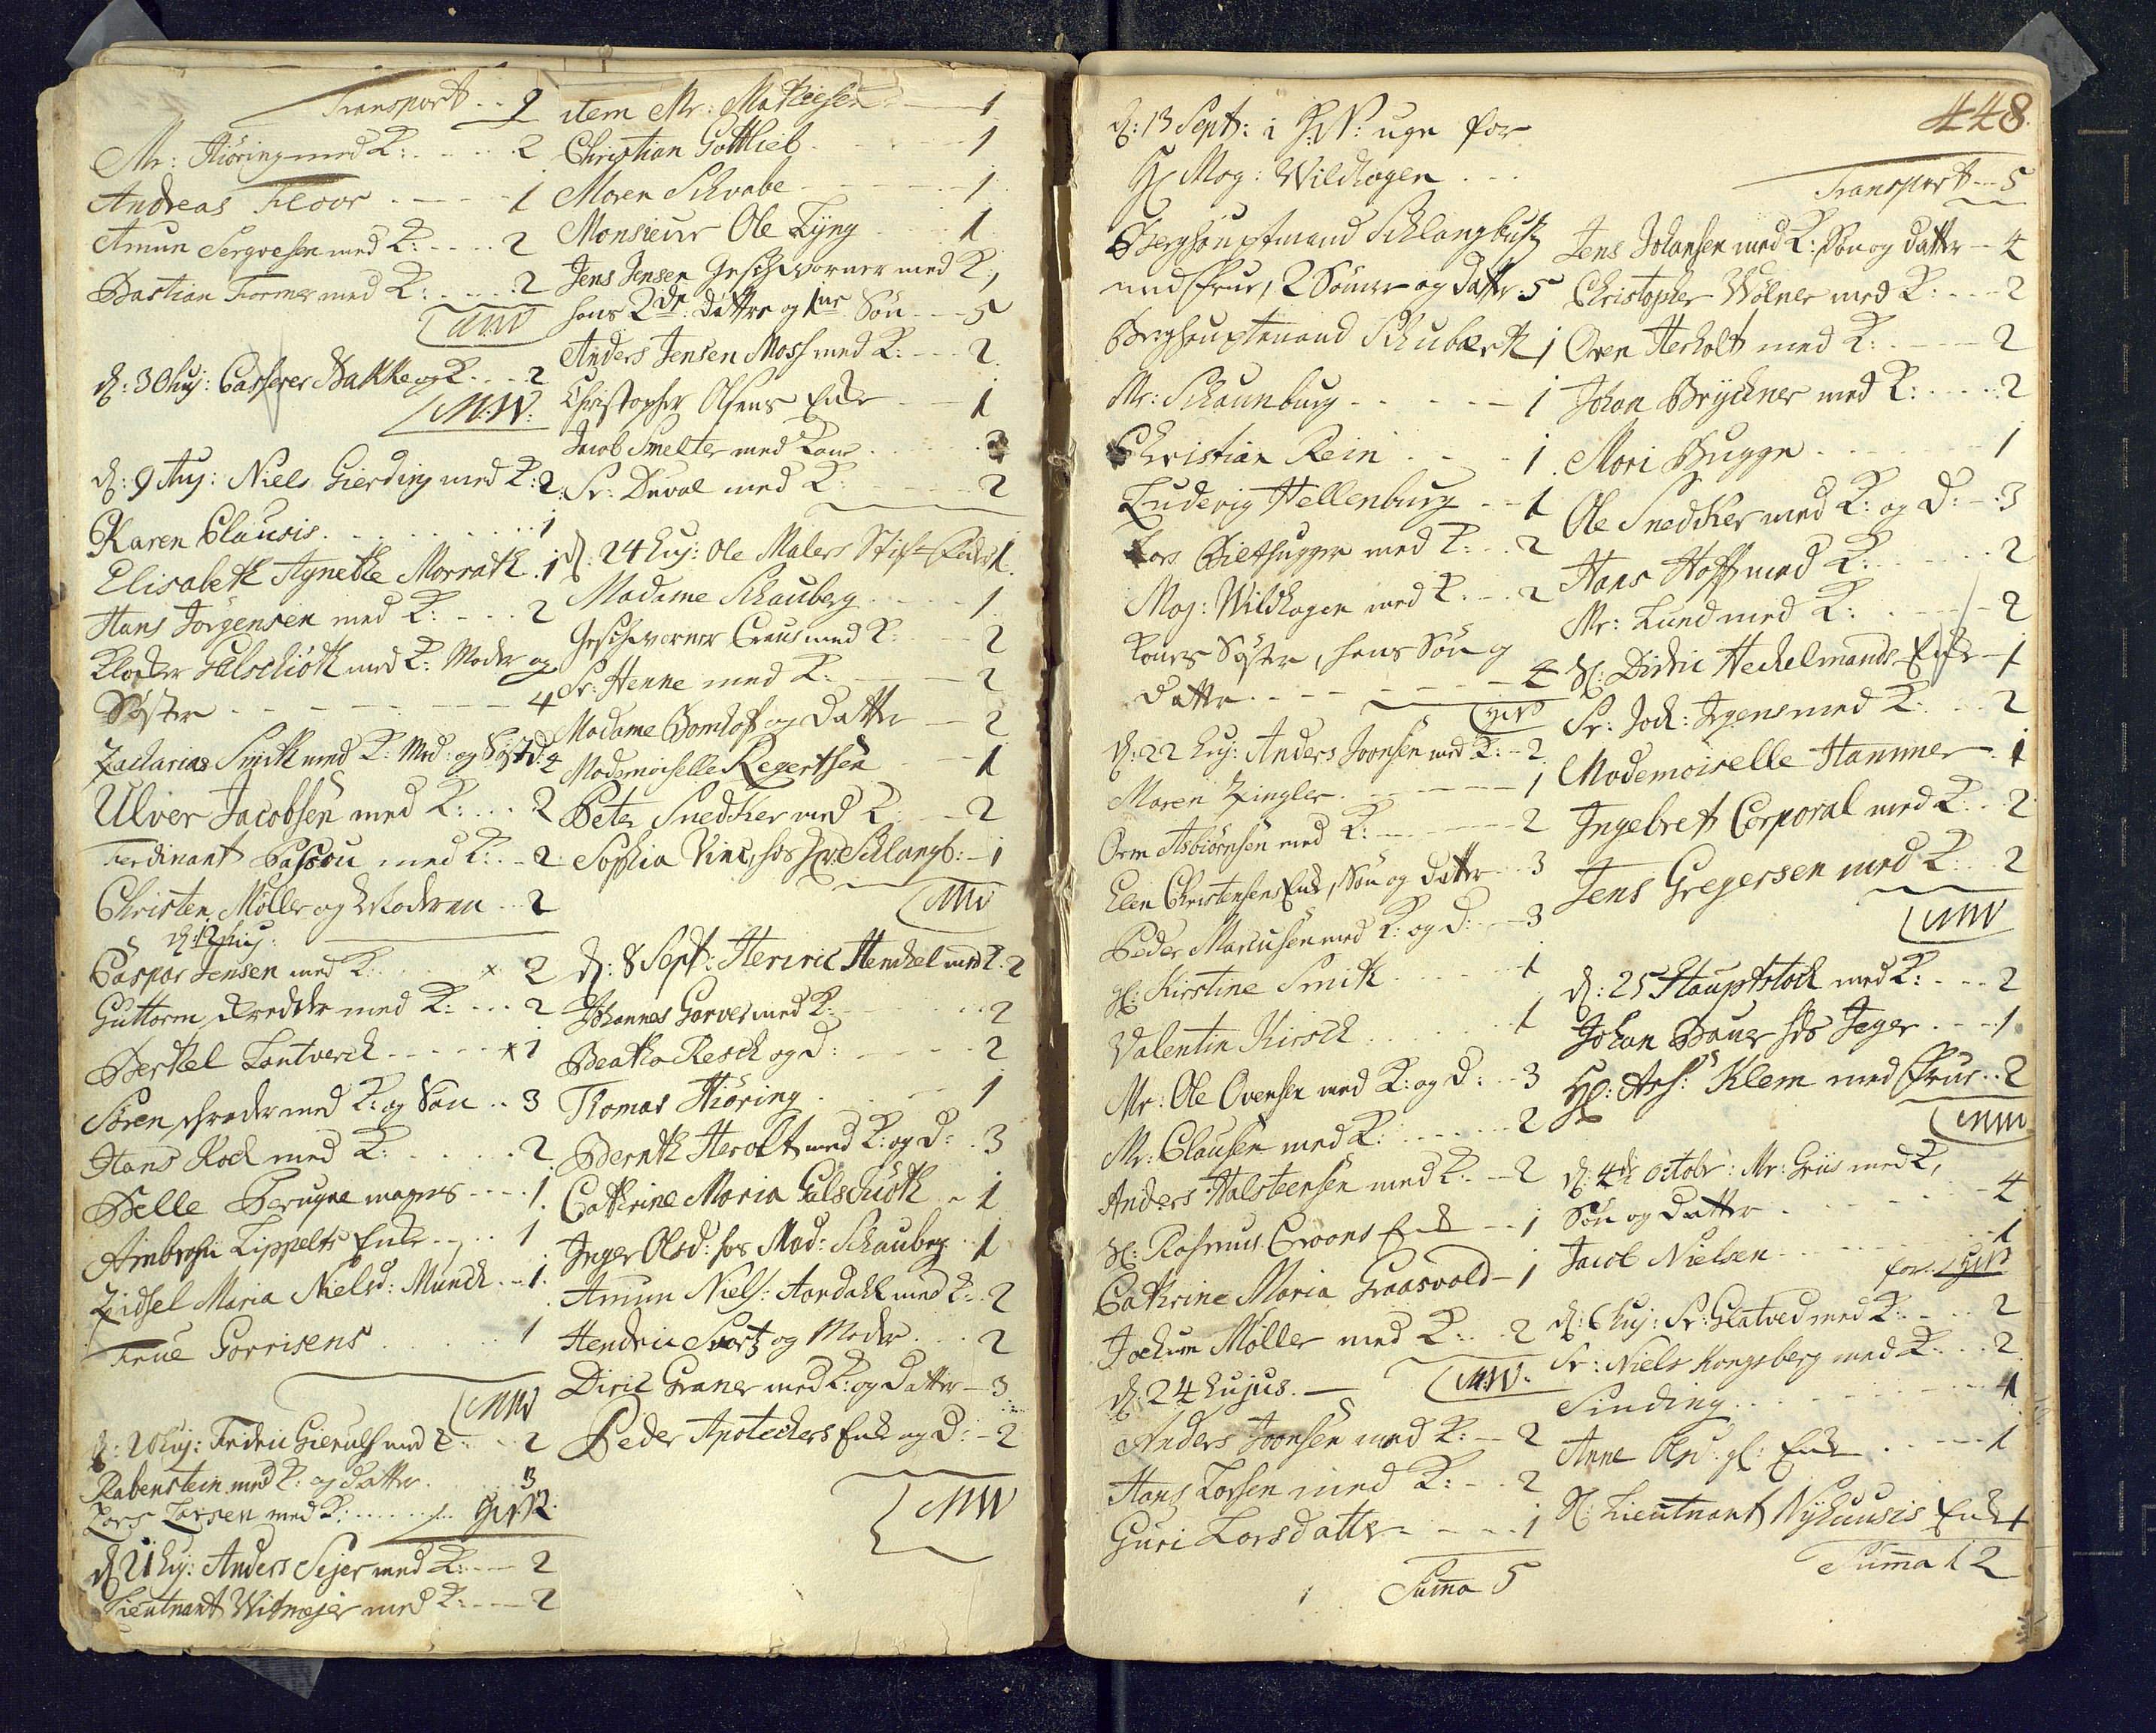 Transport . . 9
Mr: Hiöring med K: . . . . 2
Andreas Floor . . . . 1
Amun Sergvesen med K: . . . . 2
Bastian Former med K: . . . . 2
MW
d: 30 huj: Casserer Bakke og K . . . 2
M:W:
d: 9 Aug: Niels Gierding med K: 2
Karen Clausis . . . . 1
Elisabeth Agnethe Morrath . 1
Hans Jörgensen med K: . . . 2
Klocker Gulschiöth med K: Moder og
Syster . . . . 4
Zacharias Smith med K: Mod: og Syst: 4
Ulver Jacobsen med K: . . . 2
Ferdinant Passou med K: . . 2
Christen Møller og Moderen . . . 2
d: 12 huj:
Caspar Jensen med K: . . . x 2
Guttorm Dredder med K: . . . 2
Berthel Lantverch . . . . x 1
Sören Schreder med K: og Son . . 3
Hans Koch med K: . . . . 2
Belle Peruqve magers . . . . 1
Ambrosii Lippelts Enke . . . 1
Zidsel Maria Nielsd: Munch . . 1
Frue Gorrisens . . . . 1
MW
d: 20 huj: Fridric Gierulf med K . . . 2
Rabenstein med K: og datter . . . 3
Lars Larsen med K: . . . . 2
d 21 huj: Anders Sejer med K: . . . 2
Lieutnant Witmejer med K: . . . 2
item Mr: Mathiesen . . . 1
Christian Gottlieb . . . 1
Maren Schvabe . . . . 1
Monsieur Ole Lyng . . . 1
Jens Jensen Geschvorner med K;
hans 2de dattre og 1ne Søn . . . 5
Anders Jensen Moss med K: . . . 2
Christopher Olsens Enke . . . 1
Jacob Smelter med Kone . . .
Sr: Duval med K: . . . 2
d: 24 huj: Ole Malers Stif- Fader 1
Madame Schauberg . . . 1
Geschvorner Craus med K: . . . 2
Sr: Henne med K: . . . 2
Madame Bomhof og datter . . . 2
Mademoiselle Regertsen . . . 1
Peter Snedcker med K . . . 2
Sophia Vinc, hos Hr: Schlangb: . 1
MW
d: 8 Sept: Henric Henckel med K: 2
Johannes Garver med K: . . . 2
Beatha Resch og d: . . . 2
Thomas Hiöring . . . 1
Bernth Herolt med K: og d: . . 3
Cathrine Maria Gulschiöth . . 1
Inger Olsd: hos Mad: Schauberg . . 1
Amun Niels: Aardahl med K: . . 2
Hendric Svartz og Moder . . . 2
Diric Graner med K: og datter . . 3
Peder Apoteckers Enke og d: . . 2
MW
448
d: 13 Sept: i H: N: uge for
Hr Mag: Wildhagen . . .
Berghauptmand Schlangbusch
med Frue, 2 Sønner og datter . 5
Berghauptmand Schubarth 1
Mr: Schaunburg . . . . 1
Christian Rein . . . 1
Ludevig Hellenburg . . . 1
Lars Bilthugger med K: . . 2
Mag: Wildhagen med K: . . 2
Kones Søster, hans Søn og
datter . . . . 4
d: 22 huj: Anders Joensen med K: . 2
Maren Zingler . . . . 1
Orm Asbiörnsen med K: . . . 2
Elen Christensens Enke, Søn og datter . . 3
Peder Marcusen med K: og d: . . 3
gl: Kirstine Smith . . . . 1
Valentin Kirsch . . . . 1
Mr: Ole Ovensen med K: og d: . . 3
Mr: Clausen med K: . . . . 2
Anders Halsteensen med K: . . 2
Sl: Rasmus Croons Enke . . 1
Cathrine Maria Graasvold . 1
Jochum Møller med K: . . 2
d: 24 hujus . M:W:
Anders Joensen med K: . . 2
Hans Larsen med K: . . 2
Guri Larsdatter . . . 1
Summa 5
Transport . . . 5
Jens Johansen med K: Søn og datter . . 4
Christopher Wölner med K: . . . 2
Oven Herholt med K: . . . . 2
Johan Bryckner med K: . . . 2
Mari Bugge . . . . 1
Ole Snedcker med K: og d: . . 3
Hans Hoff med K: . . . 2
Mr: Lund med K: . . . 2
Sl: Didric Heckelmands Enke . 1
Sr: Joch: Irgens med K: . . . 2
Mademoiselle Hammer . 1
Ingebret Corporal med K . . . 2
Jens Gregersen med K: . . 2
MW
d: 25 Hauptstock med K: . . . 2
Johan Bauer hos Jeger . . . 1
Hr: Ass: Klem med Frue . . 2
MW
d: 4de October: Mr: Griis med K;
Søn og datter . . . . 4
Jacob Nielsen . . . . 1
for:
d: 6 huj: Sr: Glatved med K: . . . 2
Sr: Niels Kongsberg med K: . . . 2
Sinding . . . . 1
Anne Olsd: gl: Enke . . . . 1
Sl: Lieutnant Nyhuusis Enke 1
Summa 12